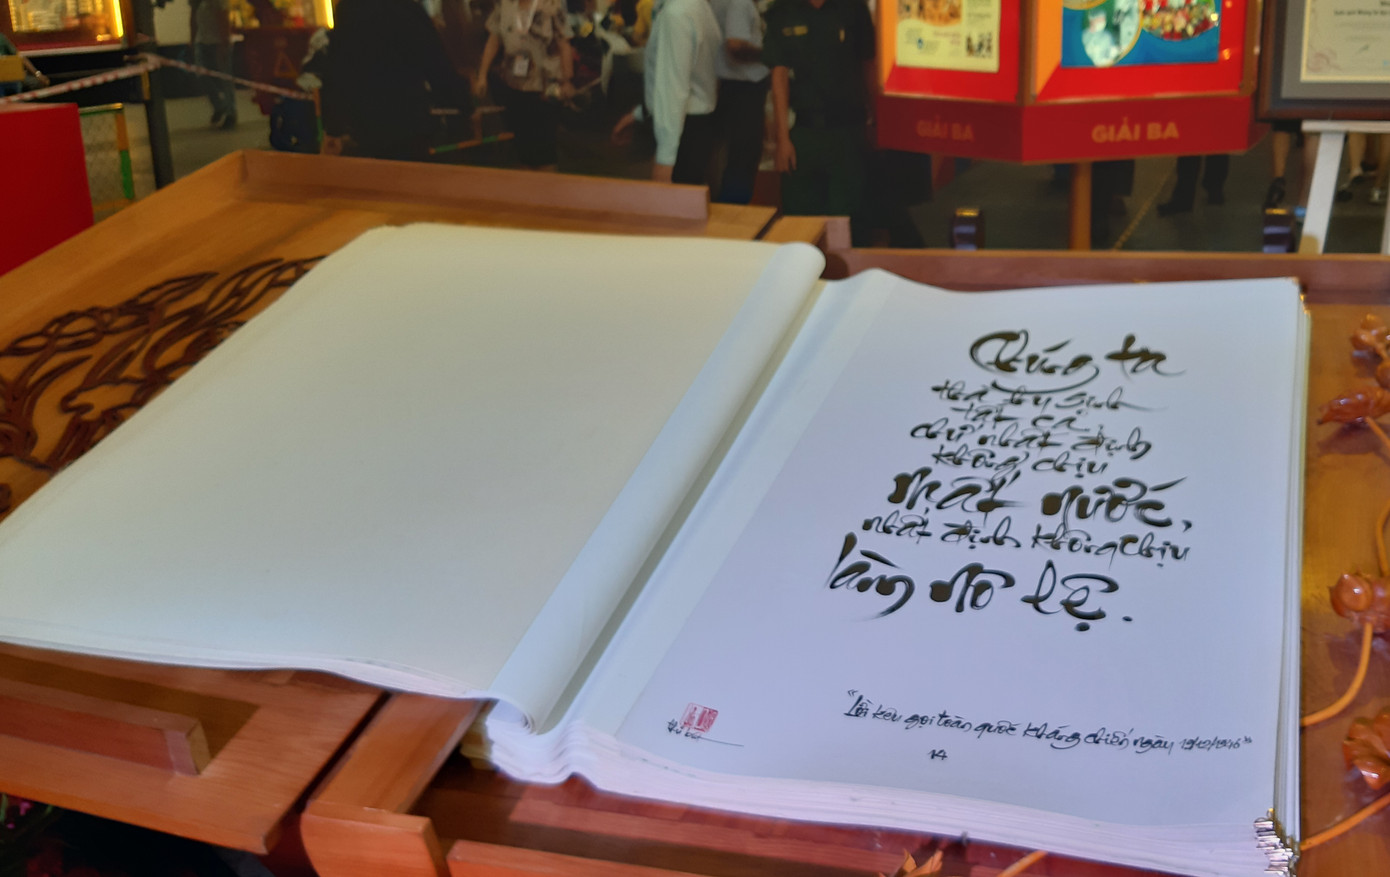 GIẢI BA
GIẢI BA
Chúng ta
thà hy sinh
tất cả,
chứ nhất định
không chịu
mất nước,
nhất định không chịu
làm nô lệ.
"Lời kêu gọi toàn quốc kháng chiến ngày 19/12/1946"
14